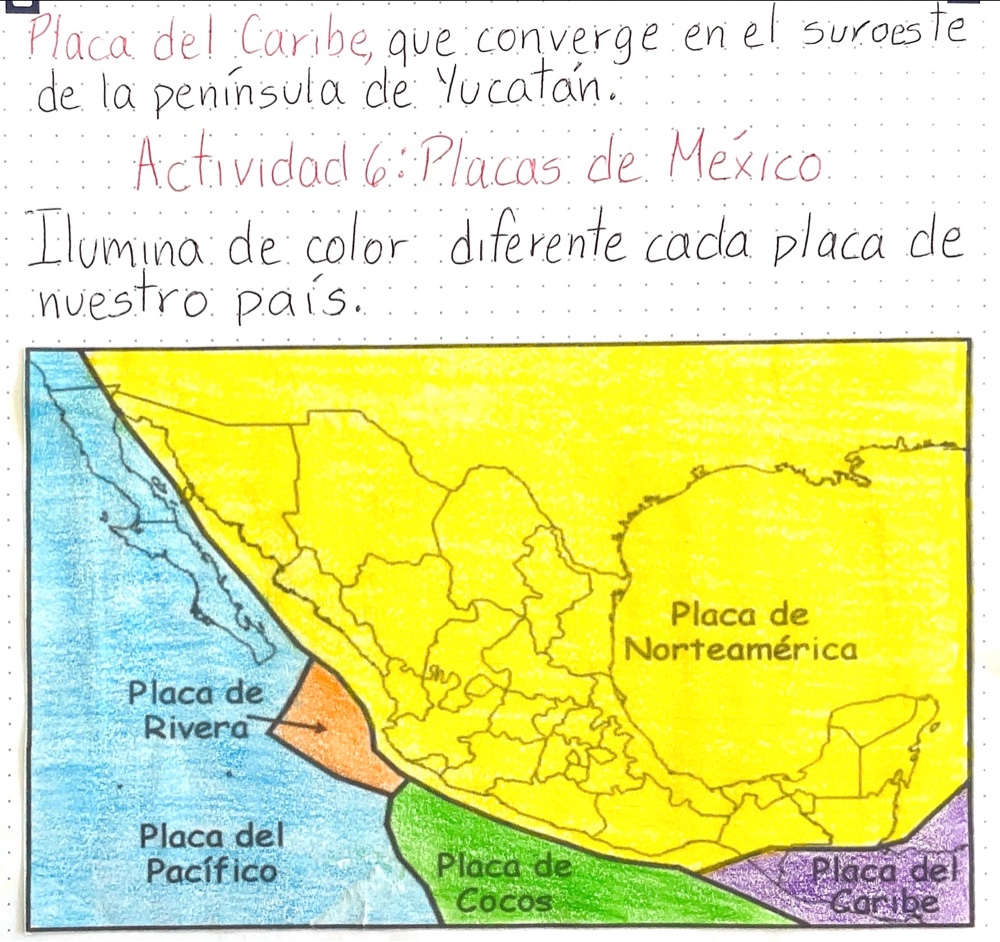 Placa del Caribe, que converge en el suroeste
de la península de Yucatán.
Actividad 6: Placas de México
Ilumina de color diferente cada placa de
nuestro país.
Placa de
Norteamérica
Placa de
Rivera
Placa del
Pacífico
Placa de
Cocos
Placa del
Caribe